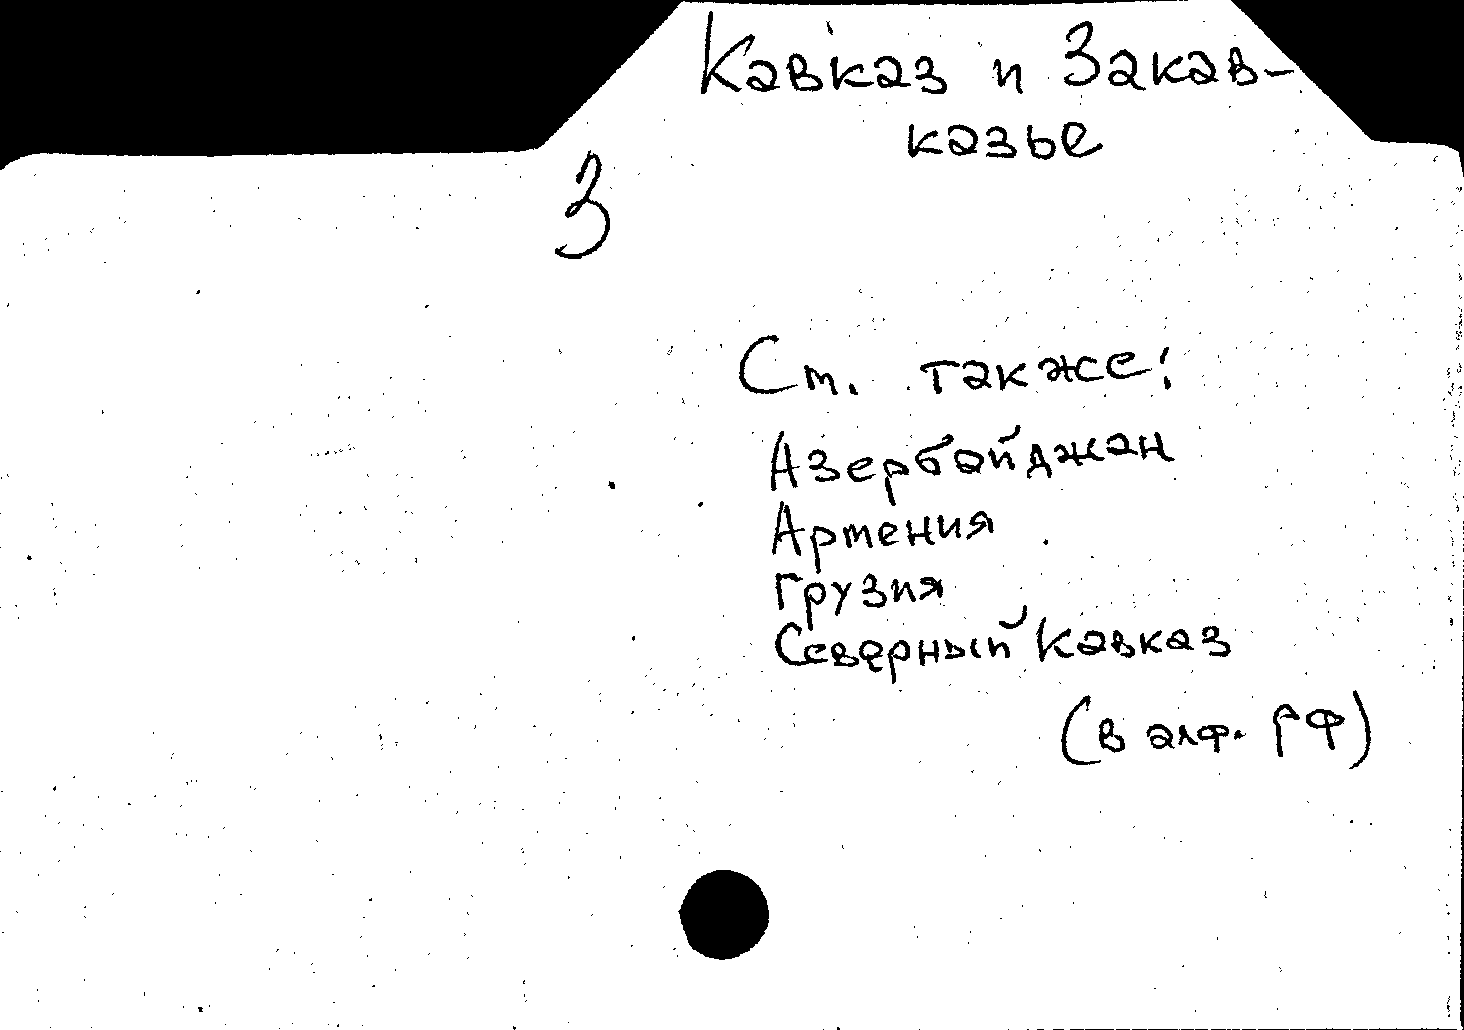 Кавказ и Закав-
казье
3
См. также:
Азербайджан
Армения
Грузия
Северный Кавказ
(в алф. РФ)